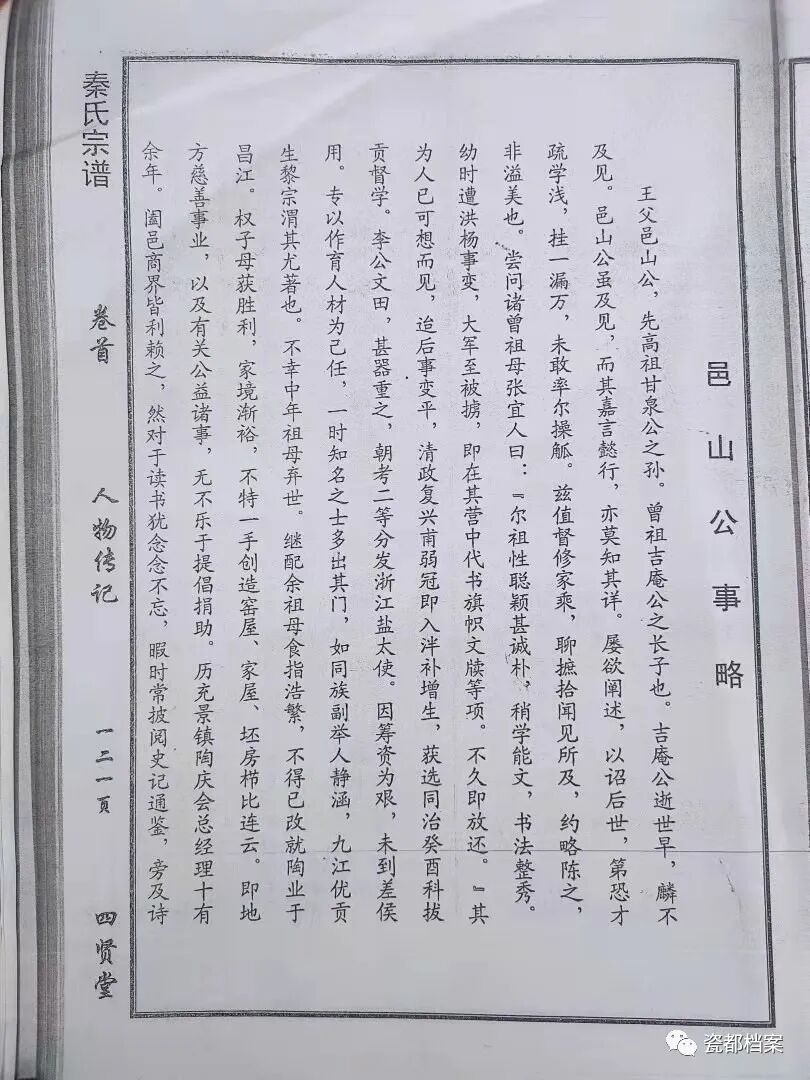 邑山公事略
王父邑山公，先高祖甘泉公之孙。曾祖吉庵公之长子也。吉庵公逝世早，麟不
及见。邑山公虽及见，而其嘉言懿行，亦莫知其详。屡欲阐述，以诏后世，第恐才
疏学浅，挂一漏万，未敢率尔操觚。兹值督修家乘，聊摭拾闻见所及，约略陈之，
非溢美也。尝问诸曾祖母张宜人曰：『尔祖性聪颖甚诚朴，稍学能文，书法整秀。
幼时遭洪杨事变，大军至被掳，即在其营中代书旗帜文牍等项。不久即放还。』其
为人已可想而见，迨后事变平，清政复兴甫弱冠即入泮补增生，获选同治癸酉科拔
贡督学。李公文田，甚器重之，朝考二等分发浙江盐太使。因筹资为艰，未到差侯
用。专以作育人材为己任，一时知名之士多出其门，如同族副举人静涵，九江优贡
生黎宗渭其尤著也。不幸中年祖母弃世。继配余祖母食指浩繁，不得已改就陶业于
昌江。权子母获胜利，家境渐裕，不特一手创造窑屋、家屋、坯房栉比连云。即地
方慈善事业，以及有关公益诸事，无不乐于提倡捐助。历充景镇陶庆会总经理十有
余年。阖邑商界皆利赖之，然对于读书犹念念不忘，暇时常披阅史记通鉴，旁及诗
秦氏宗谱
卷首
人物传记
一二一页
四贤堂
瓷都档案